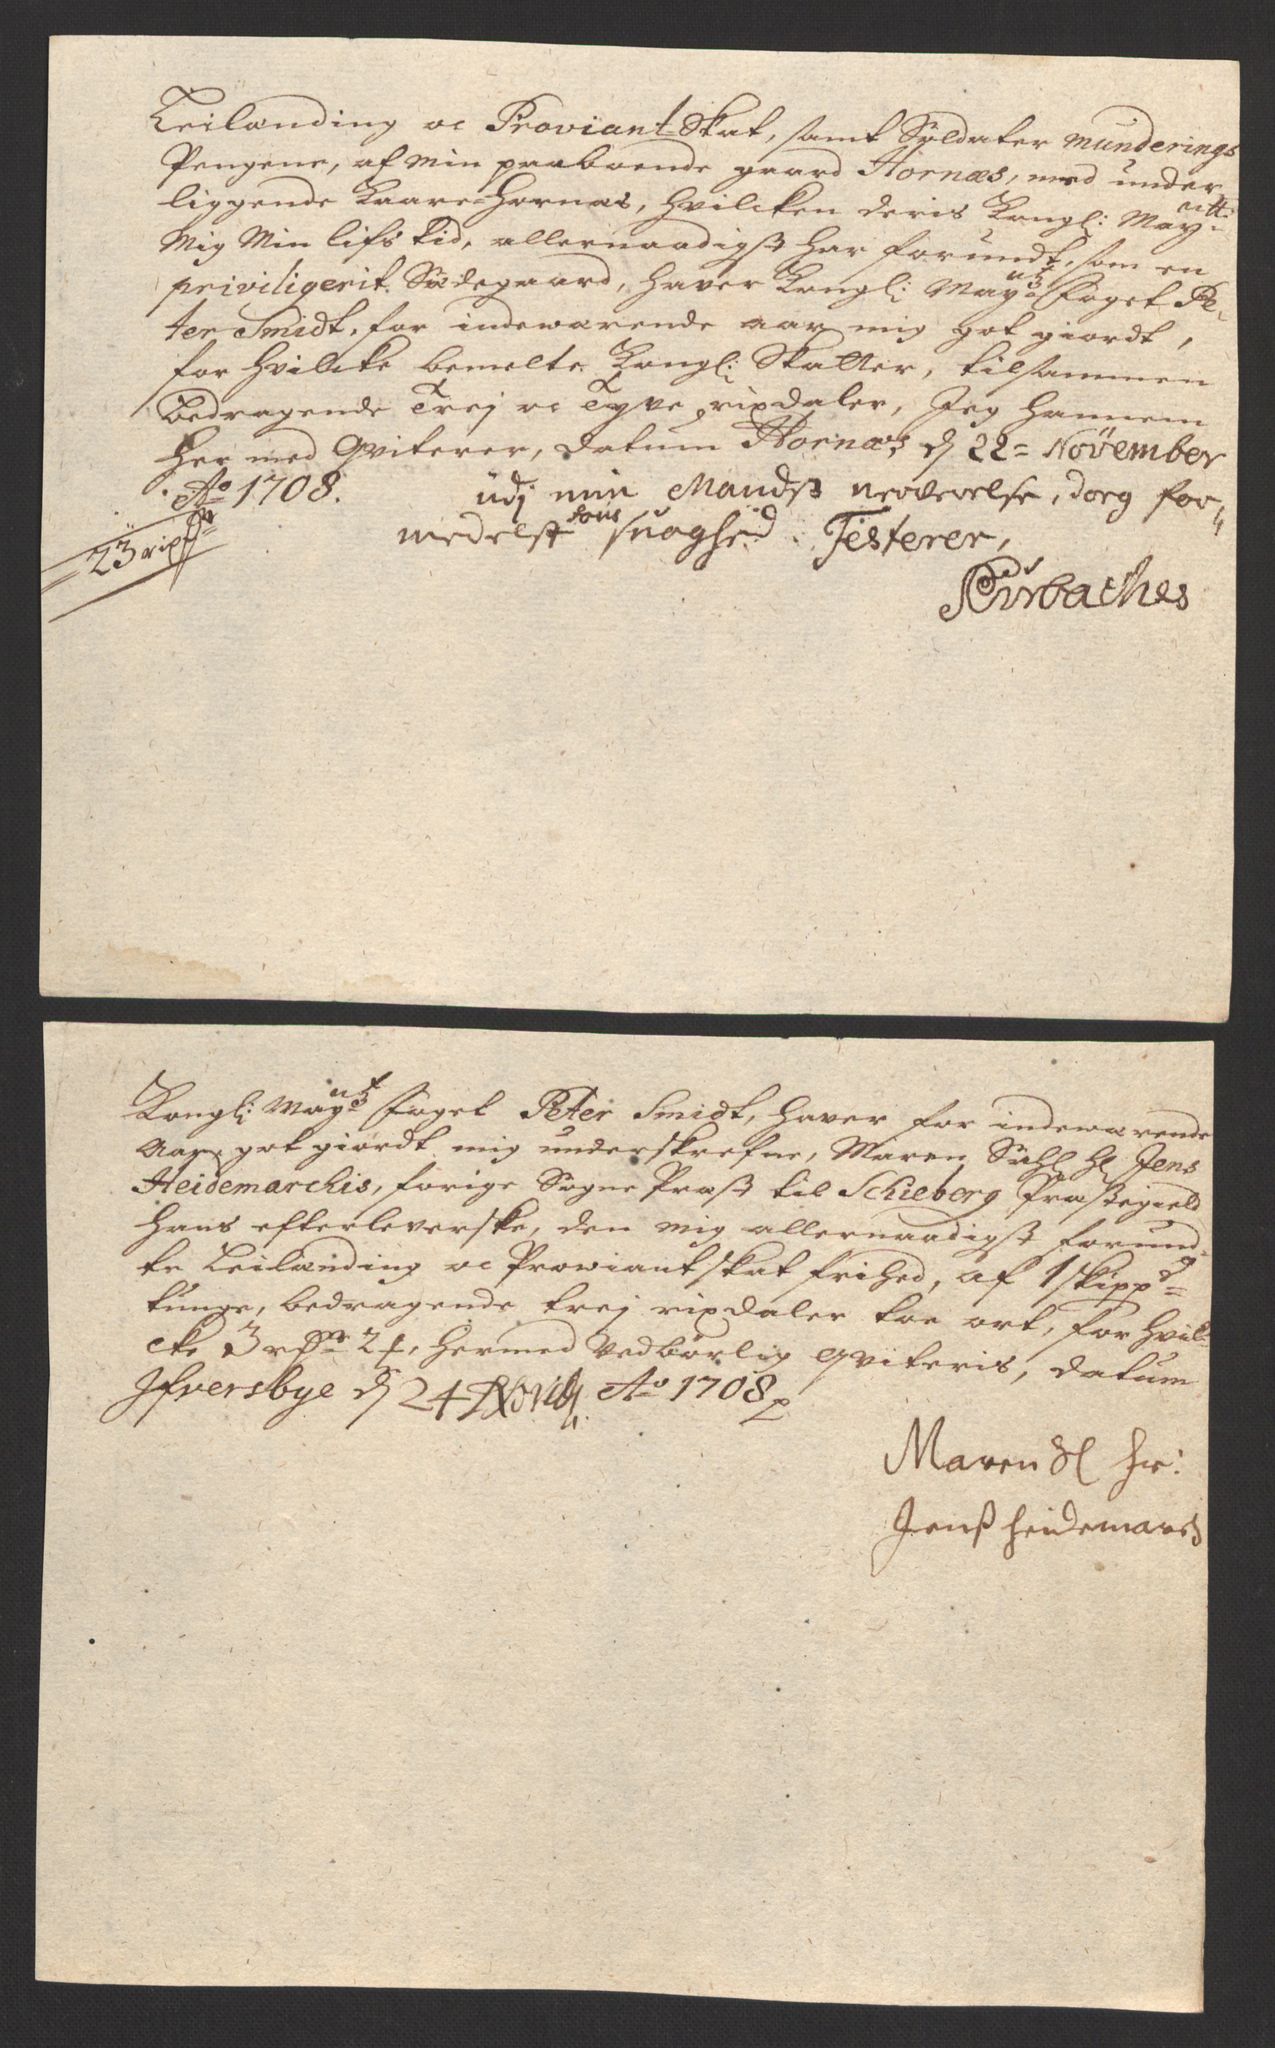 Leilænding oc Proviant-Skat, samt Soldater munderings
Pengene, af Min paaboende gaard Hornæs, med under
liggende Kaare-Hornæs, hvilcken deris Kongl: May:tt:
Mig Min lifs tid, allernaadigst har forundt, som en
priviligerit Sædegaard, haver Kongl: May:tz foget Pe-
ter Smidt, for indeværende aar mig got giordt,
for hvilcke bemelte Kongl: Skatter, tilsammen
bedragende Trej oc Tyve rixdaler, Jeg hannem
her med Qviterer, datum Hornæs d 22= November
Ao 1708. udj min Mandß
medelst hans svaghed Testerer,
23 rixdr
Kongl: May:tz foget Peter Smidt, haver for indeværende
aar got giordt mig underskrefne, Maren Sahl Hl Jens
Heidemarchis, forige Sogne Præst til Schieberg Præstegield
hans efterleverske, den mig allernaadigst forund-
te Leilænding oc Prowiant skat frihed, af 1 skippd
tunge, bedragende trej rixdaler toe ort, for hvil-
cke 3 rdr 2 , hermed vedbørlig qviteris, datum
Ifversbye d 24 Novb Ao 1708
Maren Sl hr:
Jenß heidemarcks